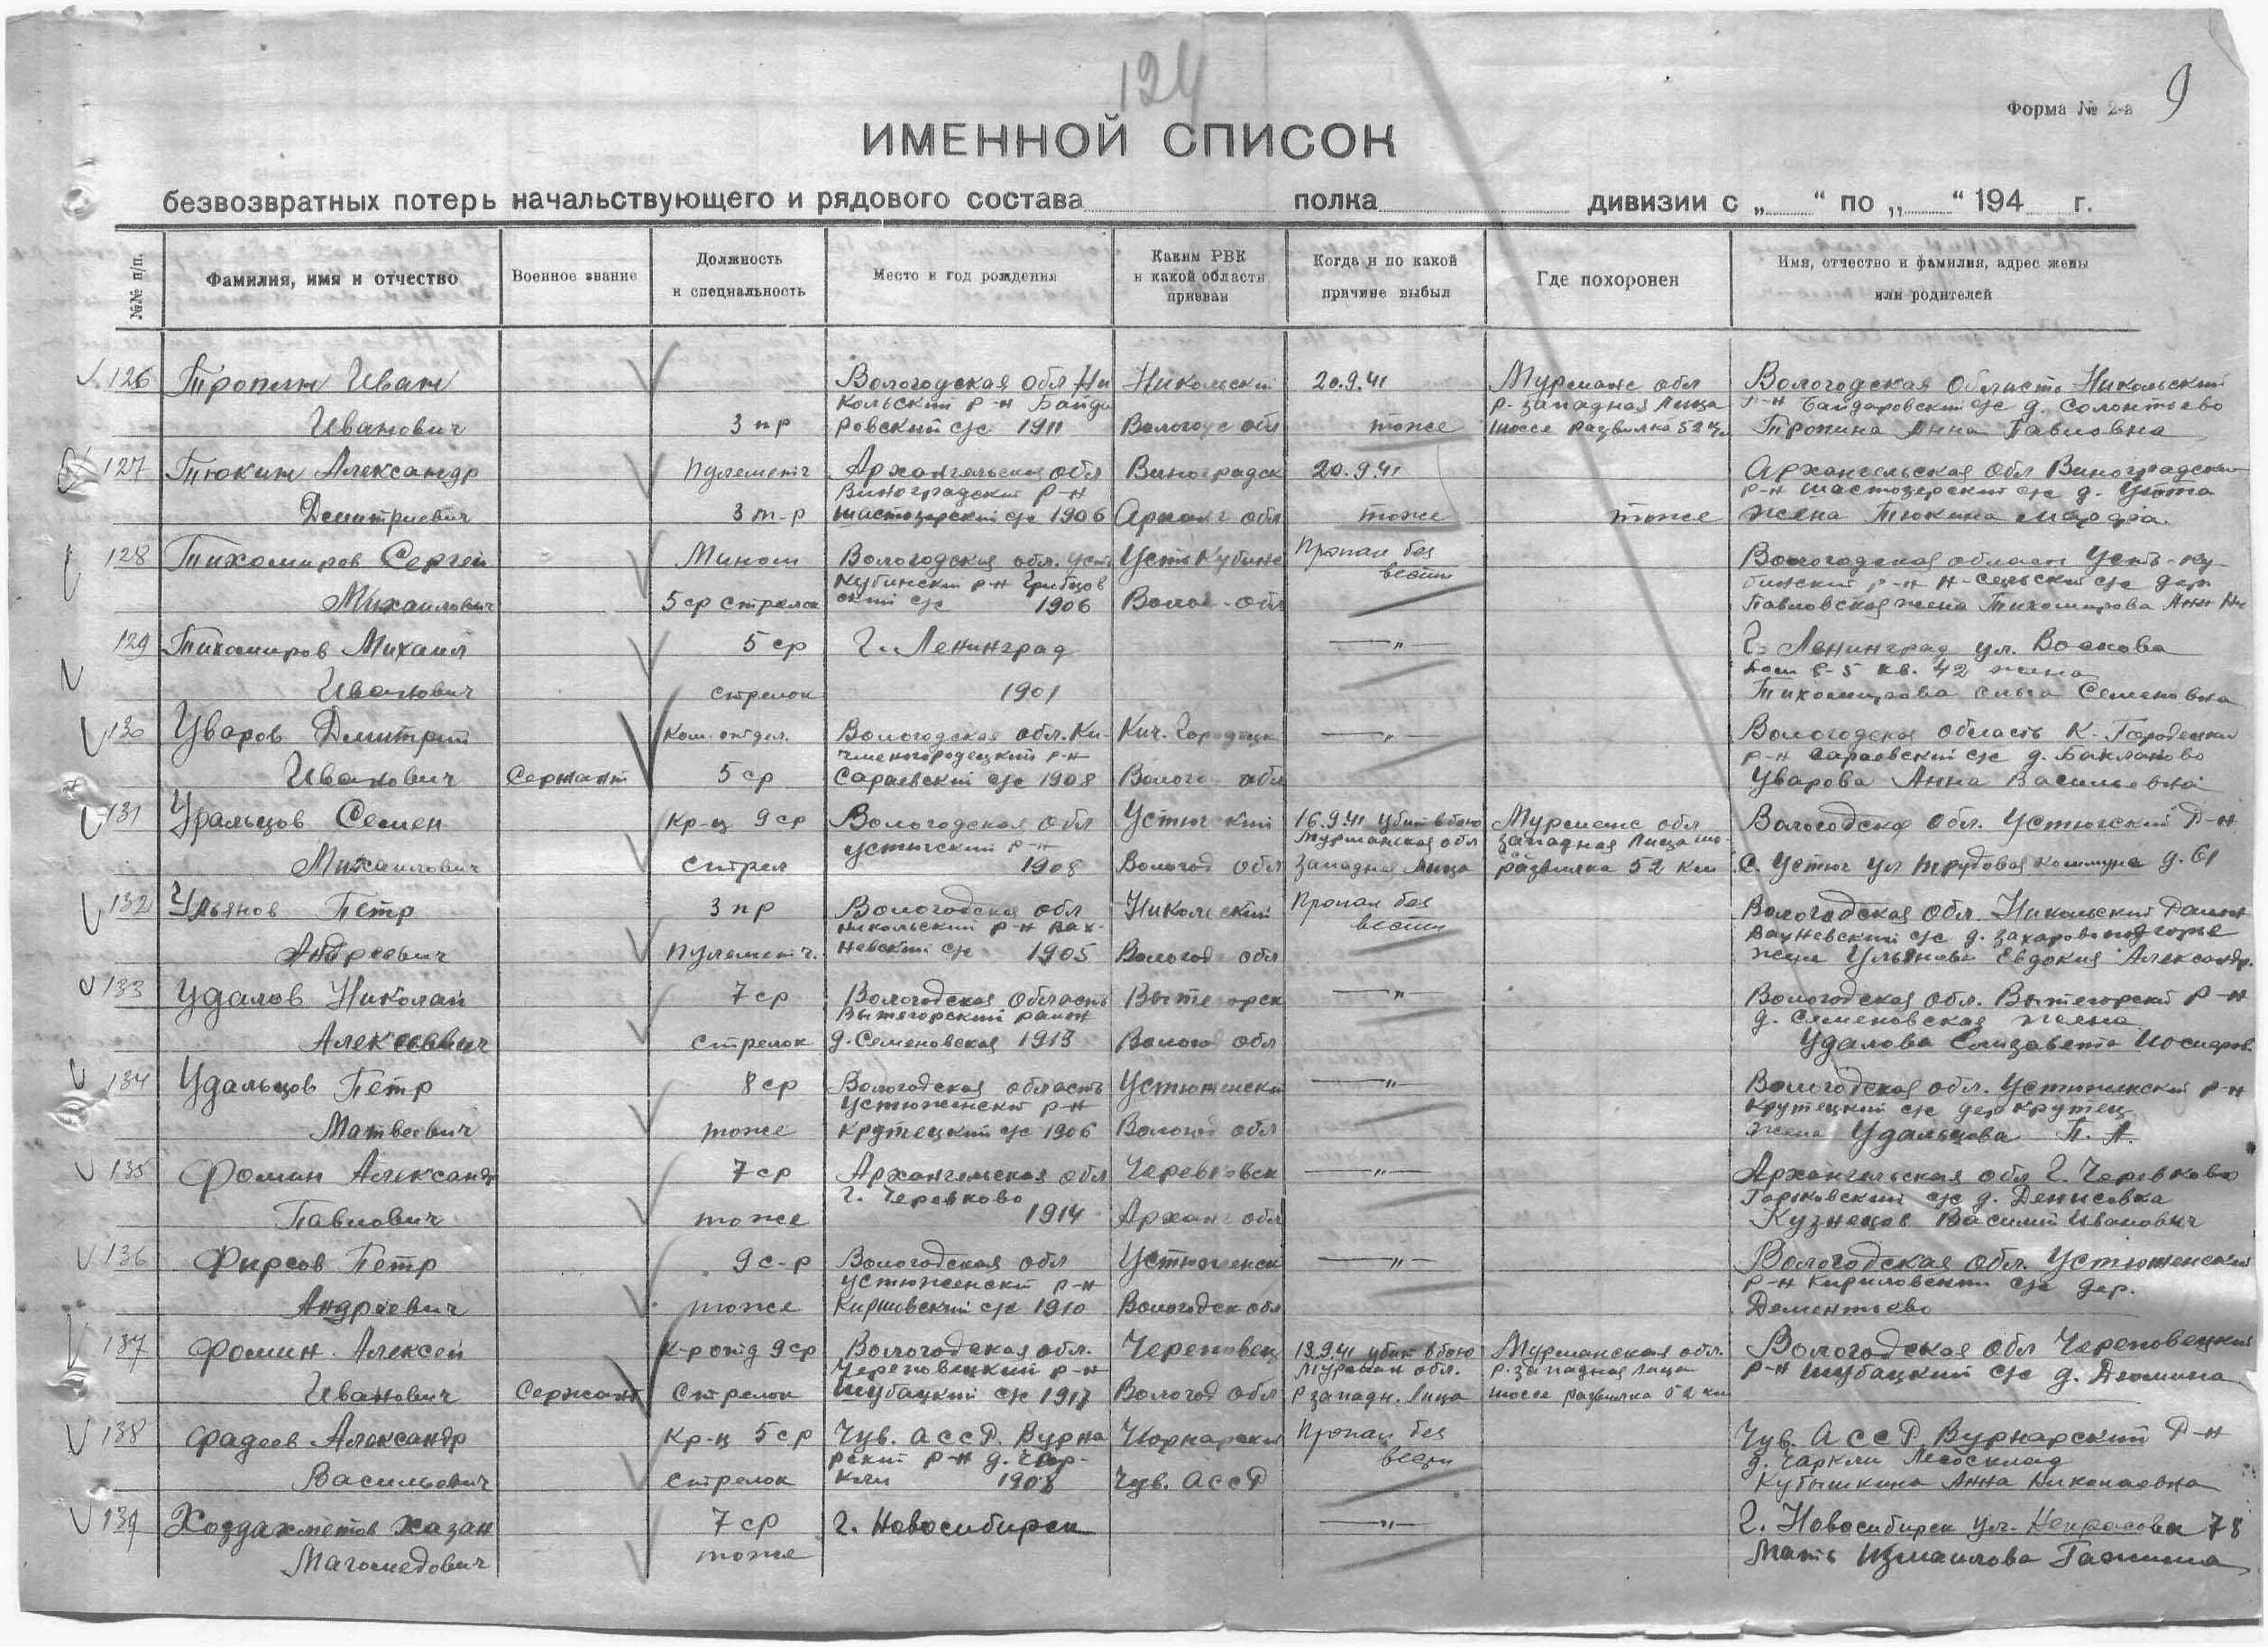 124
9
Форма № 2-а
ИМЕННОЙ СПИСОК
безвозвратных потерь начальствующего и рядового состава полка дивизии с „ “ по „ “ 194 г.
№№ п/п.
Фамилия, имя и отчество
Военное звание
Должность
и специальность
Место и год рождения
Каким РВК
и какой области
призван
Когда и по какой
причине выбыл
Где похоронен
Имя, отчество и фамилия, адрес жены
или родителей
126 Тропин Иван Вологодская обл Ни Никольский 20.9.41 Мурманс обл Вологодская Область Никольский
кольский р-н Байда р. западная Лица р-н Байдаровский с/с д. Солонтьево
Иванович 3 пр ровский с/с 1911 Вологодс обл тоже шоссе развилка 52 км Тропина Анна Павловна
127 Тюкин Александр пулеметч Архангельская обл Виноградск 20.9.41 Архангельская обл Виноградский
Виноградский р-н р-н Шастозерский с/с д.
Дмитриевич Шастозерский с/с 1906 Арханг обл тоже тоже жена Тюкина Марфа.
128 Тихомиров Сергей Вологодская обл. Усть Усть Кубинс Пропал без Вологодская област Усть-Ку-
Кубинский р-н Грибцов вести бинский р-н Н-сельский с/с дер
Михаилович 5 ср стрелок ский с/с 1906 Волог-обл Павловская жена Тихомирова Анн
129 Тихомиров Михаил 5 ср г. Ленинград —„— г. Ленинград ул. Воскова
дом 8-5 кв. 42 жена
Иванович стрелок 1901 Тихомирова Ольга Семеновна
130 Уваров Дмитрий Ком. отдел. Вологодская обл. Ки- Кич. Городецк —„— Вологодская область К-Городецкий
чменгородецкий р-н р-н Сараевский с/с д. Баклановo
Иванович Сержант 5 ср Сараевский с/с 1908 Волого обл Уварова Анна Васильевна
131 Уральцов Семен Кр-ц 9 ср Вологодская обл Устюгский 16.9.41 убит в бою Мурманс обл Вологодска обл. Устюгский р-н
Устюгский р-н Мурманская обл западная Лица шо-
Михаилович стрел 1908 Вологод обл западная Лица развилка 52 км г. Устюг ул Трудовая коммуна д. 61
132 Ульянов Петр 3 пр Вологодская обл Никольский Пропал без Вологодская обл. Никольский район
Никольский р-н Вах- вести Вахневский с/с д. захарово подгорье
Андреевич пулеметч. невский с/с 1905 Вологод обл жена Ульянова Евдокия Александр.
133 Удалов Николай 7 ср Вологодская область Вытегорск —„— Вологодская обл. Вытегорский р-н
Вытегорский район д. Семеновская жена
Алексеевич стрелок д. Семеновская 1913 Вологод обл Удалова Елизавета Иосифов.
134 Удальцов Петр 8 ср Вологодская область Устюженский —„— Вологодская обл. Устюженский р-н
Устюженский р-н Крутецкий с/с дер Крутец
Матвеевич тоже Крутецкий с/с 1906 Вологод обл жена Удальцова П. А.
135 Фомин Александр 7 ср Архангельская обл Черевковск —„— Архангельская обл г. Черевково
г. Черевково Горковский с/с д. Денисовка
Павлович тоже 1914 Арханг обл Кузнецов Василий Иванович
136 Фирсов Петр 9 с-р Вологодская обл Устюженск —„— Вологодская обл. Устюженский
Устюженский р-н р-н Кириловский с/с дер.
Андреевич тоже Кириловский с/с 1910 Вологодск обл Дементьево
137 Фомин Алексей к-р отд 9 ср Вологодская обл. Череповец 13.9.41 убит в бою Мурманская обл. Вологодская обл Череповецкий
Череповецкий р-н Мурман обл. р. западная Лица р-н Шубацкий с/с д. Демина
Иванович Сержант стрелок Шубацкий с/с 1917 Вологод обл р западн. Лица шоссе развилка 52 км
138 Фадеев Александр Кр-ц 5 ср Чув. АССР. Вурна Пропал без Чув. АССР Вурнарский р-н
рский р-н д. Чар- вести д. Чаркли Лесосклад
Васильевич стрелок кли 1908 Чув. АССР Кубышкина Анна Николаевна
139 Хоздахметов Хазан 7 ср г. Новосибирск —„— г. Новосибирск ул. Некрасова 78
Магомедович тоже Мать Измаилова